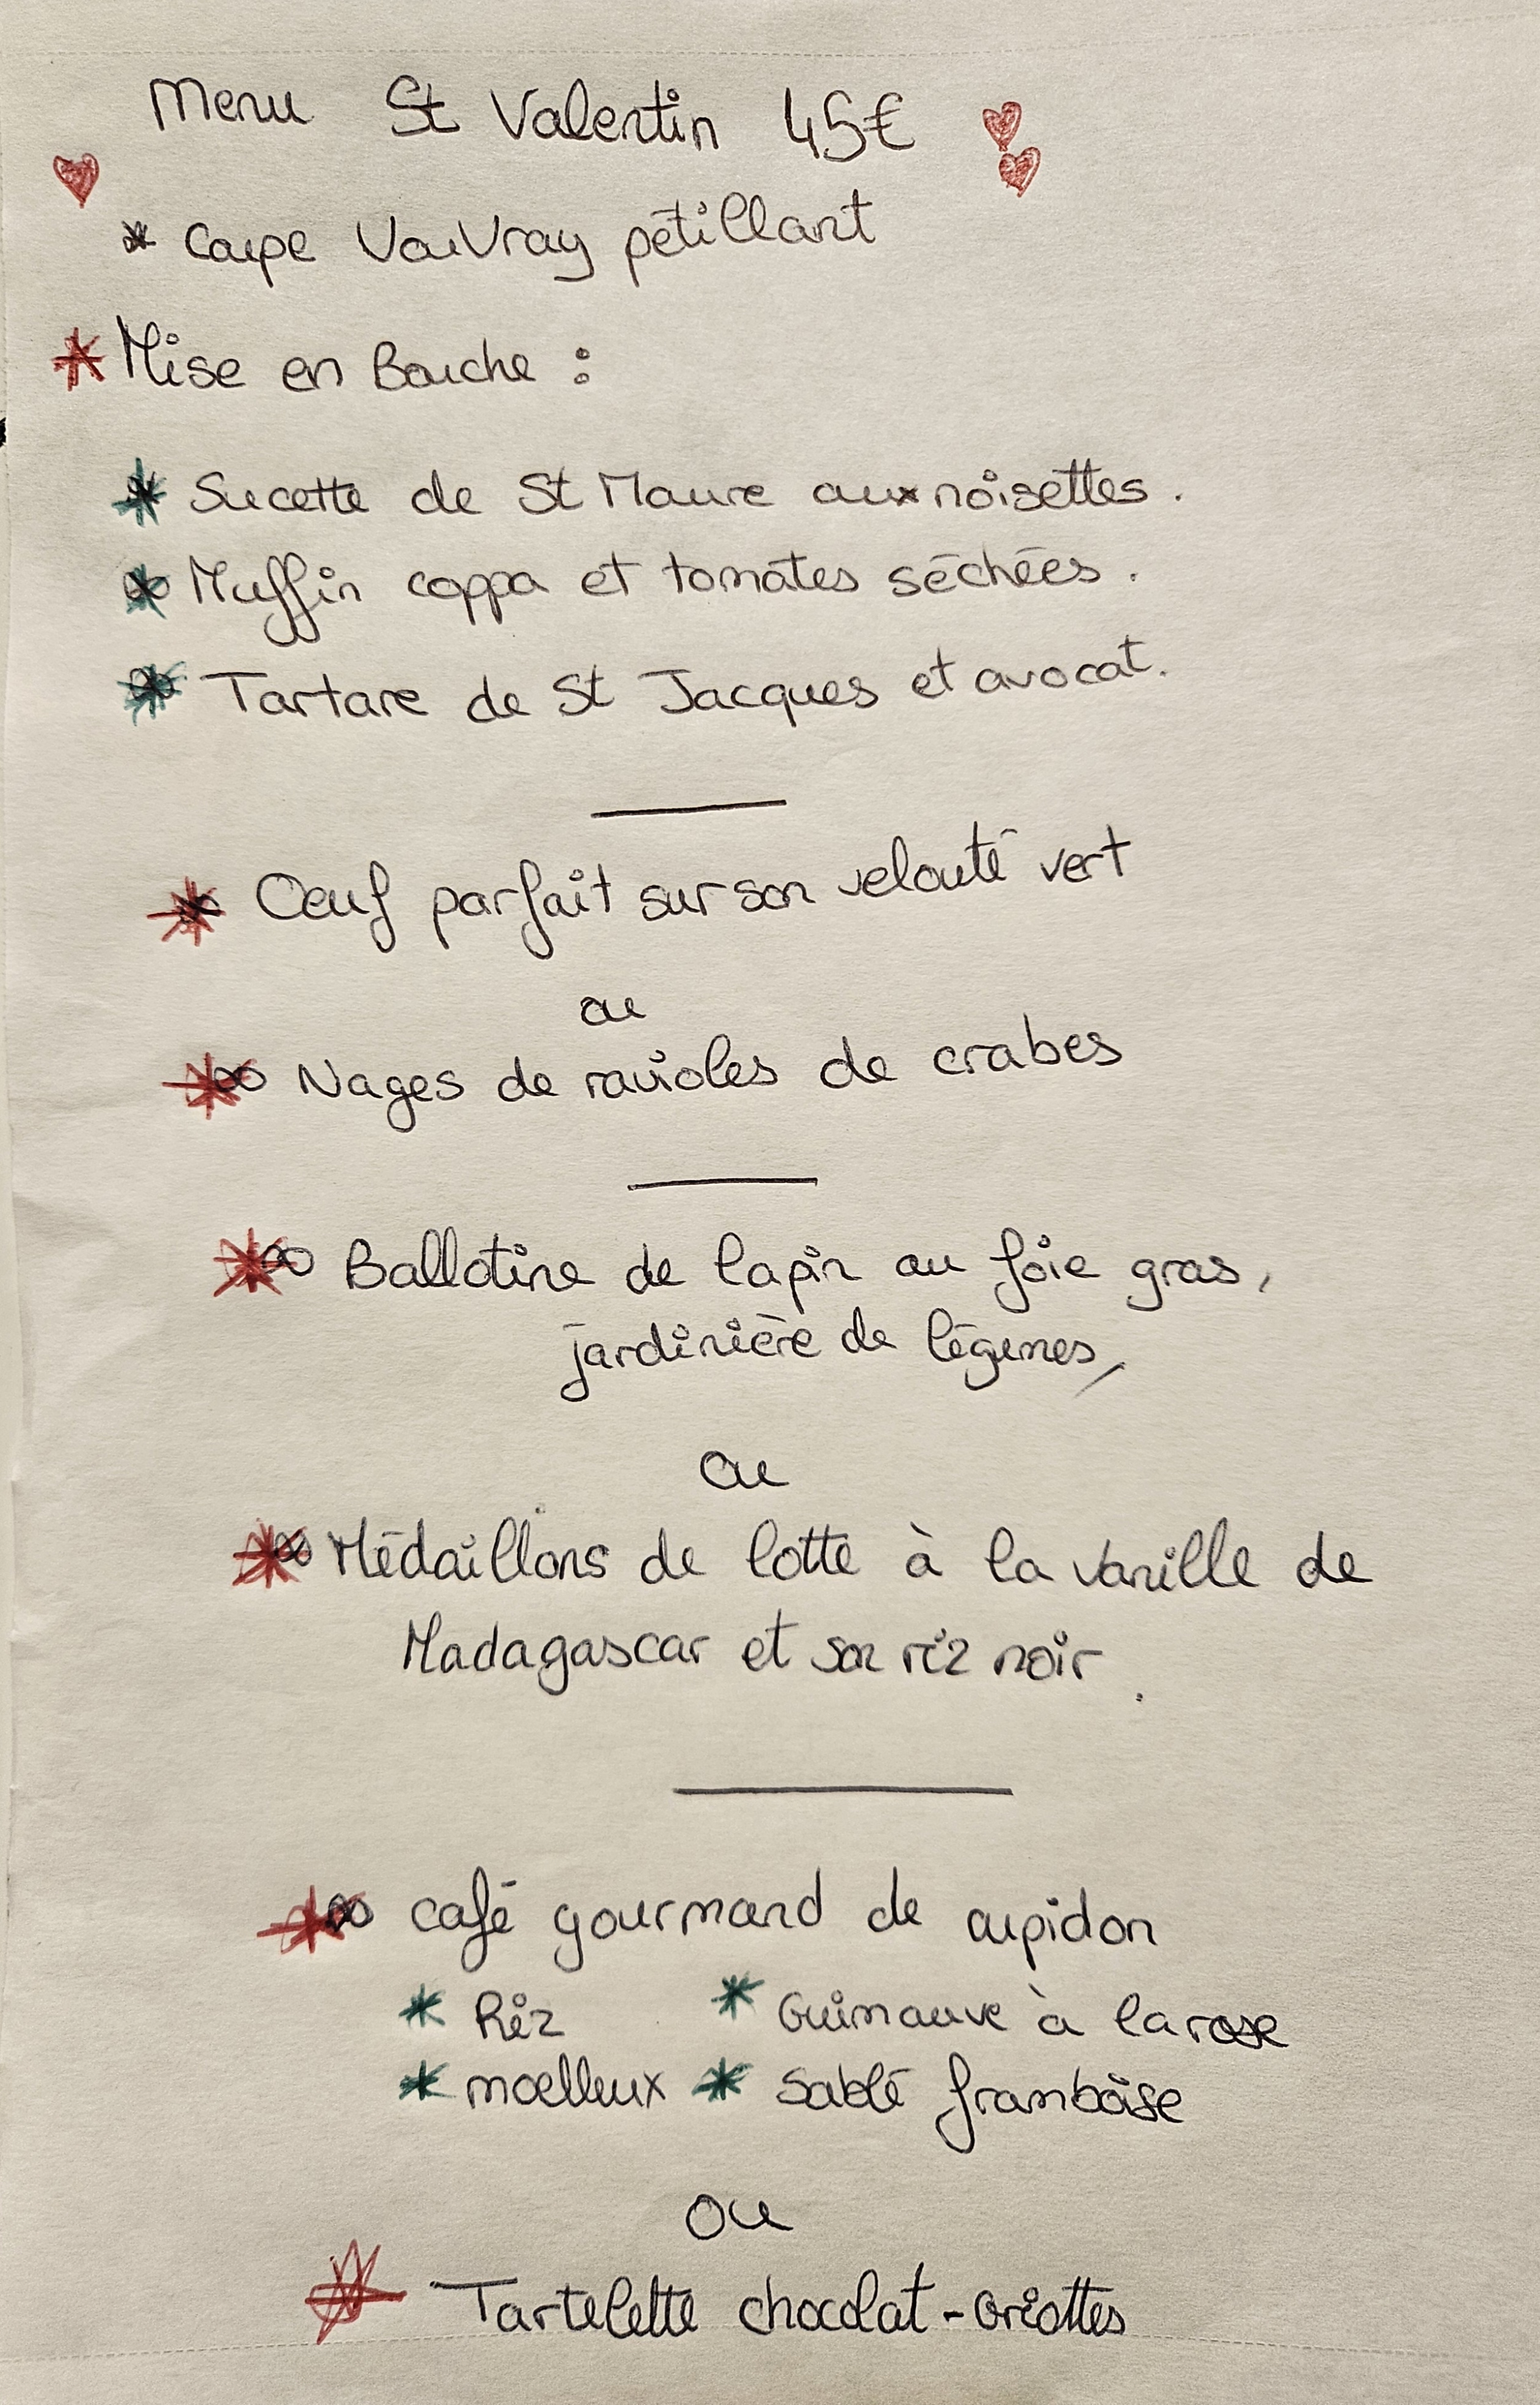 Menu St Valentin 45€
* Coupe VouVray pétillant
* Mise en Bouche :
* Sucette de St Maure aux noisettes.
* Muffin coppa et tomates séchées.
* Tartare de St Jacques et avocat.
* Oeuf parfait sur son velouté vert
ou
* Nages de ravioles de crabes
* Ballotine de lapin au foie gras,
jardinière de légumes,
ou
* Médaillons de lotte à la vanille de
Madagascar et son riz noir.
* café gourmand de cupidon
* Riz * Guimauve à la rose
* moelleux * Sablé framboise
ou
* Tartelette chocolat - Griottes